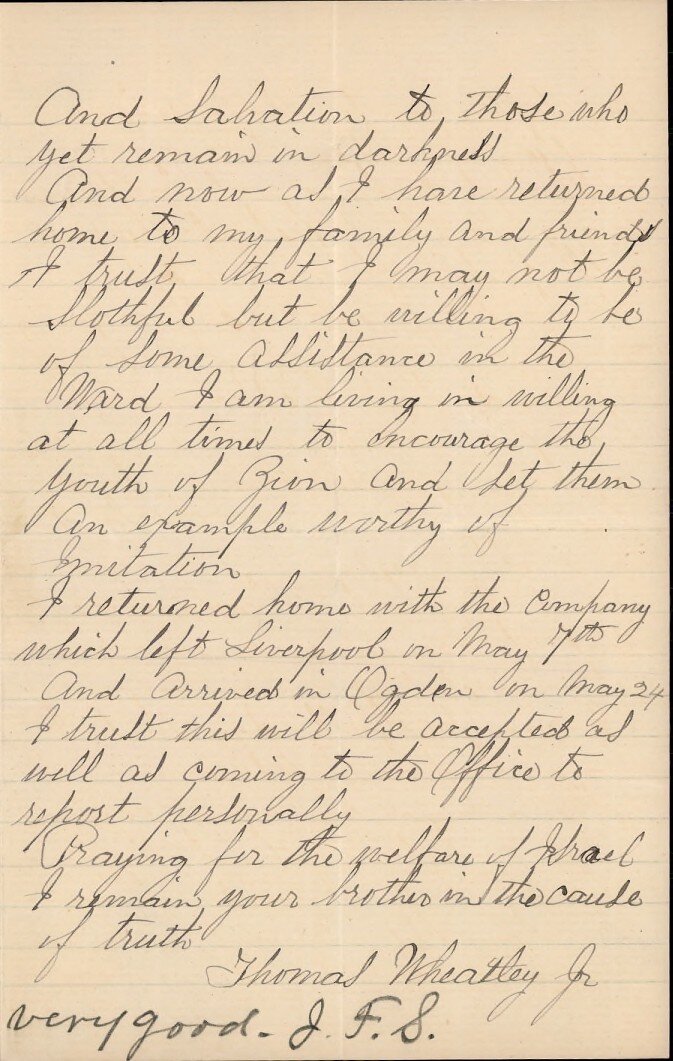 And Salvation to those who
yet remain in darkness
And now as I have returned
home to my family and friends
I trust that I may not be
slothful but be willing to be
of some assistance in the
Ward I am living in willing
at all times to encourage the
youth of Zion and set them
an example worthy of
Imitation
I returned home with the company
which left Liverpool on May 7th
And arrived in Ogden on May 24
I trust this will be accepted as
well as coming to the Office to
report personally
Praying for the welfare of Israel
I remain your brother in the cause
of truth
Thomas Wheatley Jr
very good. J. F. S.